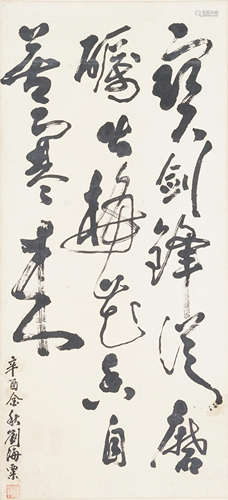 寶劍鋒從磨
礪出梅花香自
苦寒來
辛酉金秋劉海粟